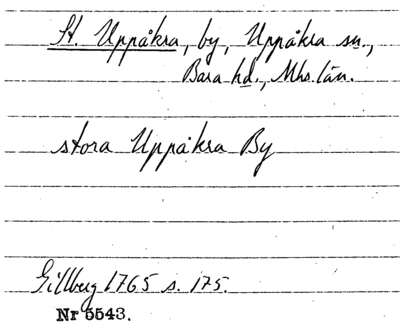 St. Uppåkra, by, Uppåkra sn.,
Bara hd., Mhs. län.
stora Uppåkra By
Gillberg 1765 s. 175.
Nr 5543.